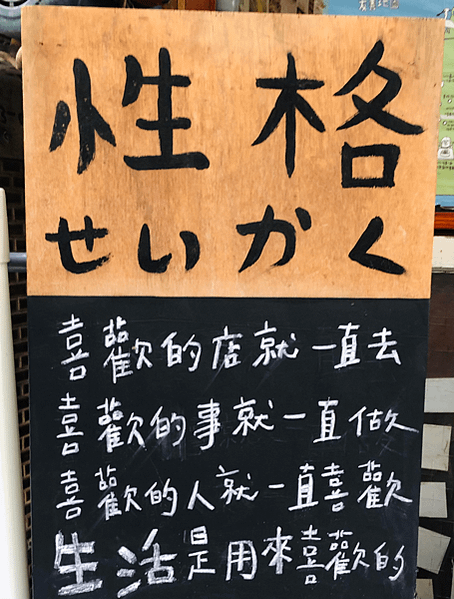 性格
せいかく
喜歡的店就一直去
喜歡的事就一直做
喜歡的人就一直喜歡
生活是用來喜歡的